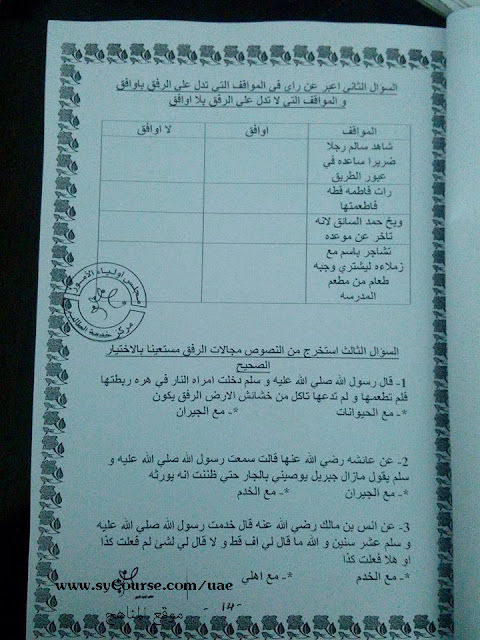 السؤال الثاني اعبر عن راي في المواقف التي تدل علي الرفق باوافق
و المواقف التي لا تدل علي الرفق بلا اوافق
المواقف اوافق لا اوافق
شاهد سالم رجلا
ضريرا ساعده في
عبور الطريق
رات فاطمه قطه
فاطعمتها
وبخ حمد السائق لانه
تاخر عن موعده
تشاجر باسم مع
زملاءه ليشتري وجبه
طعام من مطعم
المدرسه
مجلس اولياء الأمور
مركز خدمة الطالب
السؤال الثالث استخرج من النصوص مجالات الرفق مستعينا بالاختيار
الصحيح
1- قال رسول الله صلي الله عليه و سلم دخلت امراه النار في هره ربطتها
فلم تطعمها و لم تدعها تاكل من خشائش الارض الرفق يكون
*- مع الحيوانات *- مع الجيران
2- عن عائشه رضي الله عنها قالت سمعت رسول الله صلي الله عليه و
سلم يقول مازال جبريل يوصيني بالجار حتي ظننت انه يورثه
*- مع الجيران *- مع الخدم
3- عن انس بن مالك رضي الله عنه قال خدمت رسول الله صلي الله عليه
و سلم عشر سنين و الله ما قال لي اف قط و لا قال لي لشئ لم فعلت كذا
او هلا فعلت كذا
*- مع الخدم *- مع اهلي
www.syCourse.com/uae
موقع المناهج
- 14 -